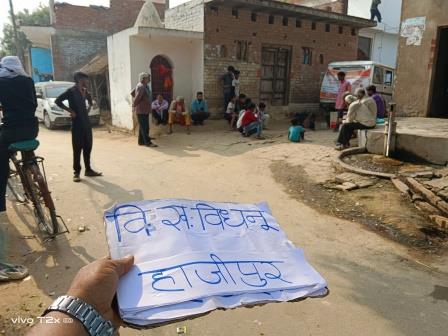 वि: सः विधनू
हाजीपुर
vivo T2x